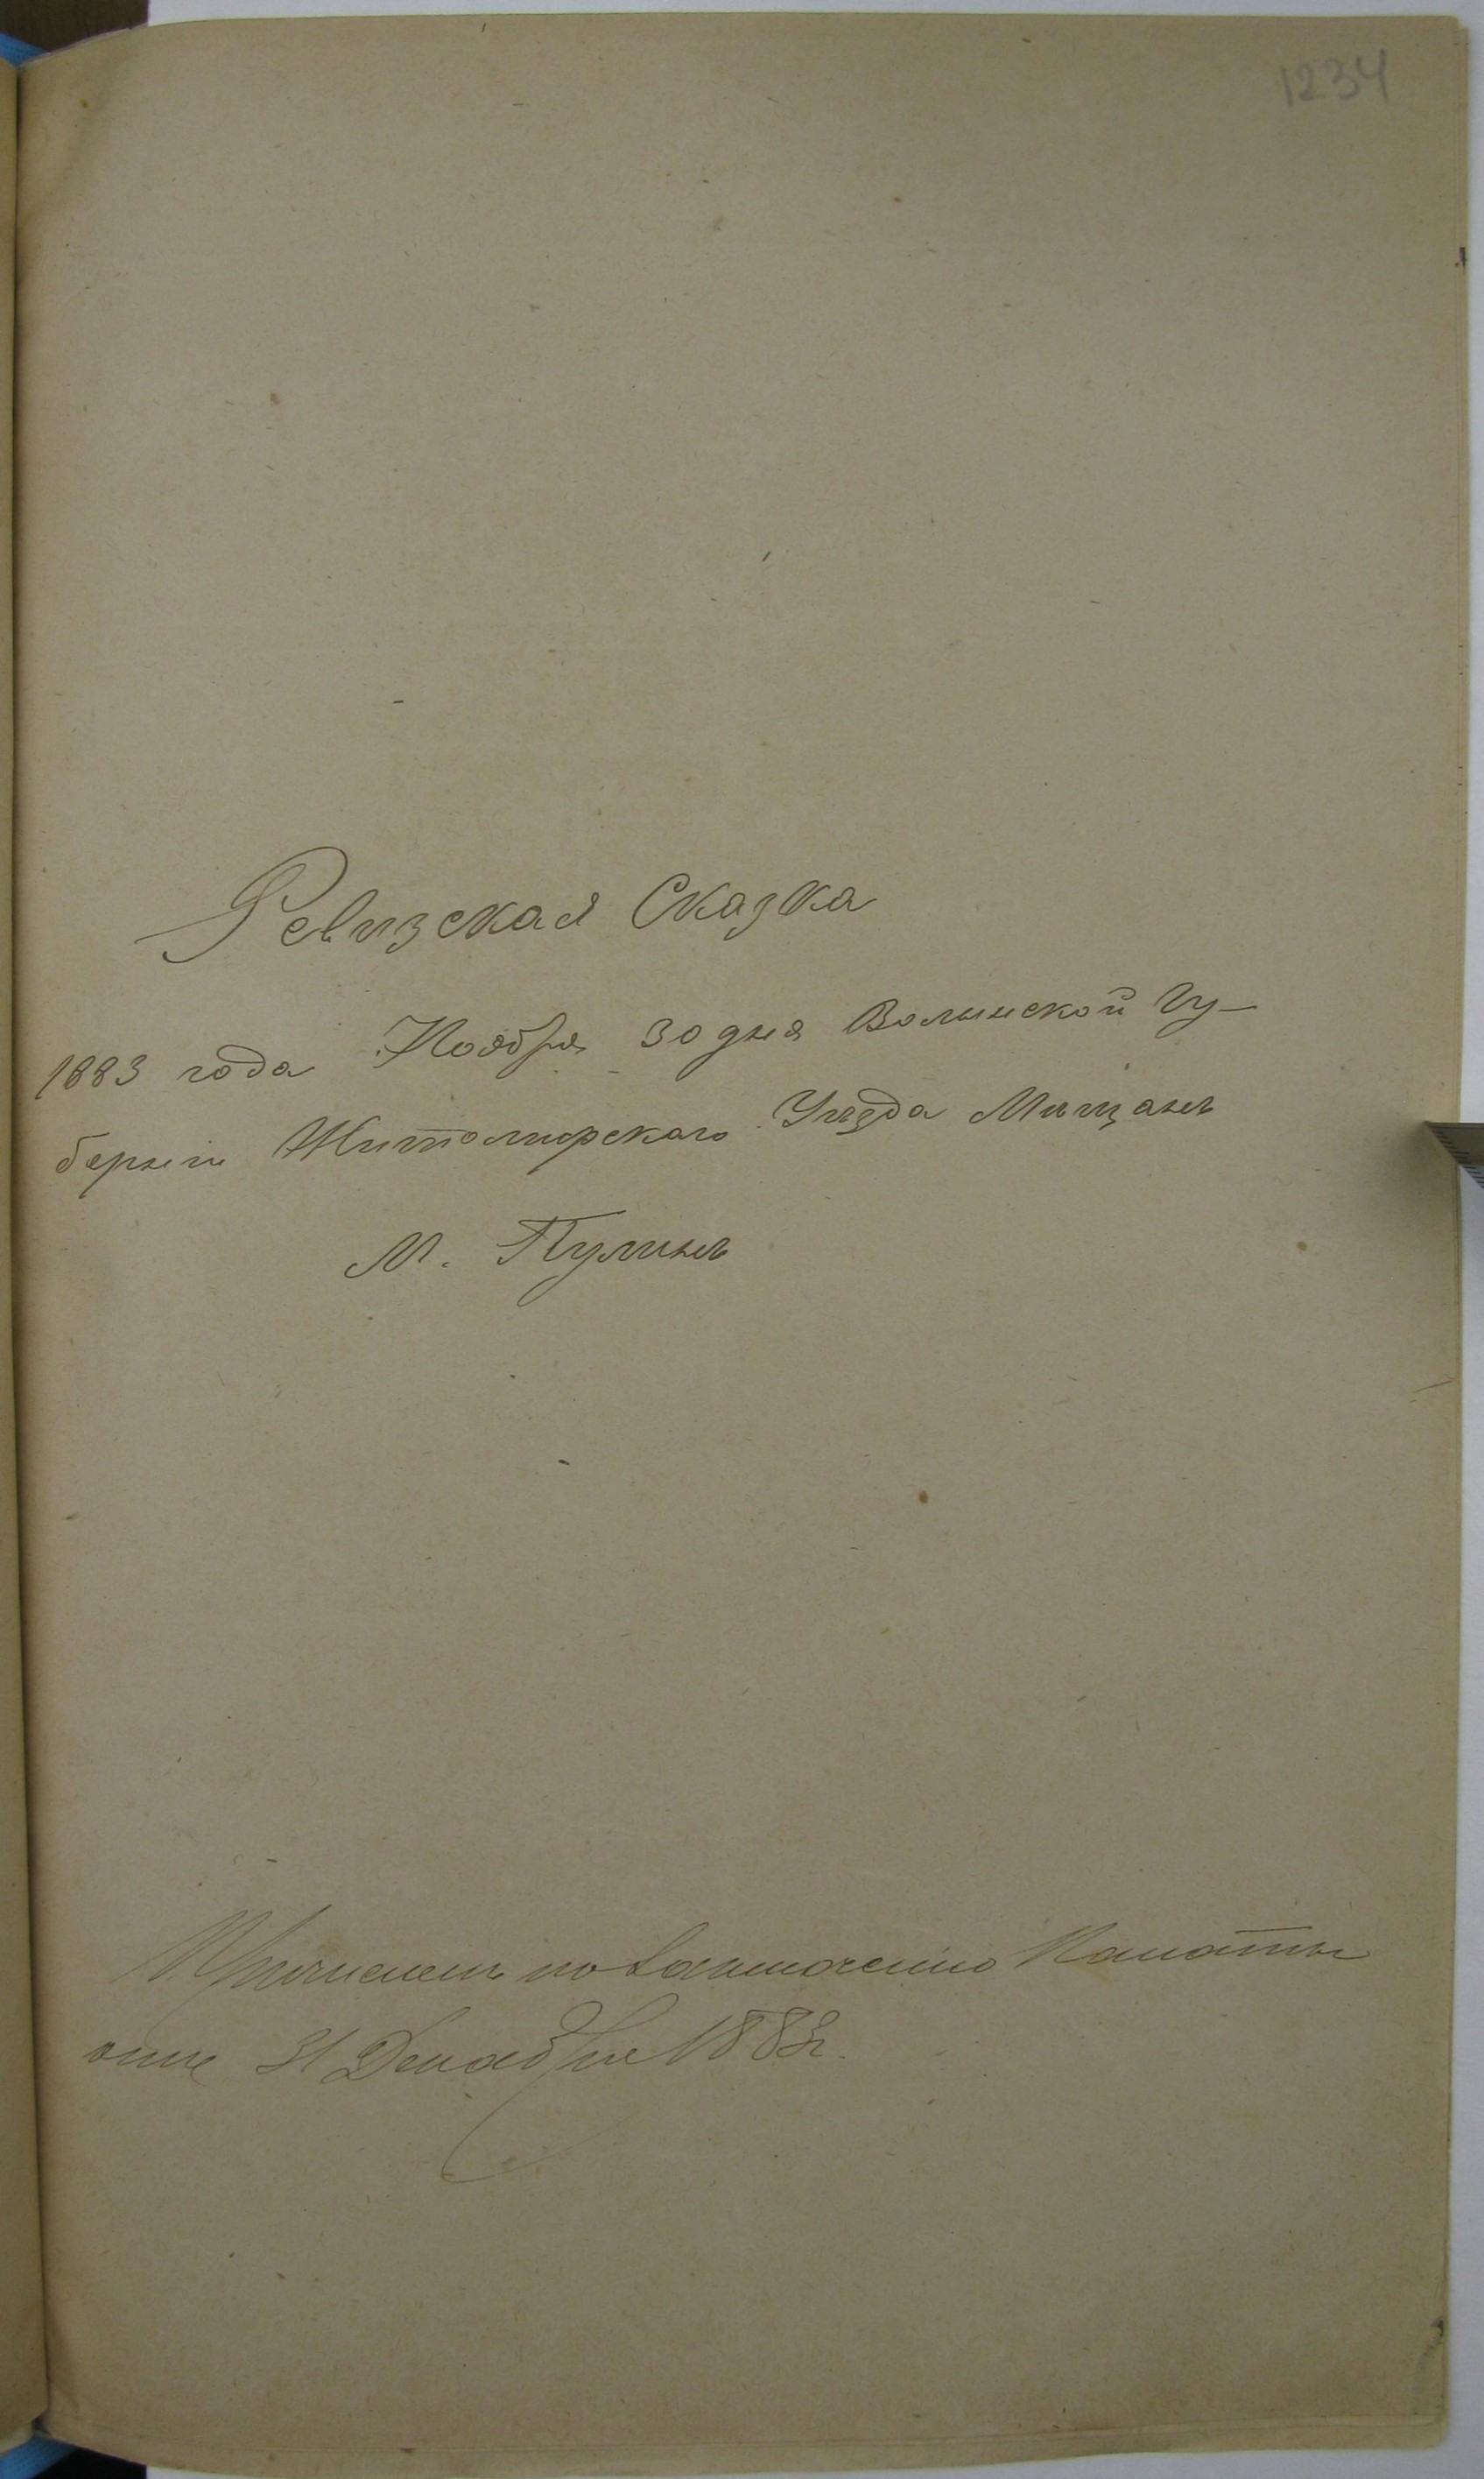 1234
Ревизская Сказка
1883 года Ноября 30 дня Волынской Гу-
берніи Житомирскаго Уѣзда Мѣщанъ
М. Пулинъ
Причисленъ по заключенію Палаты
31 Декабря 1883 г.